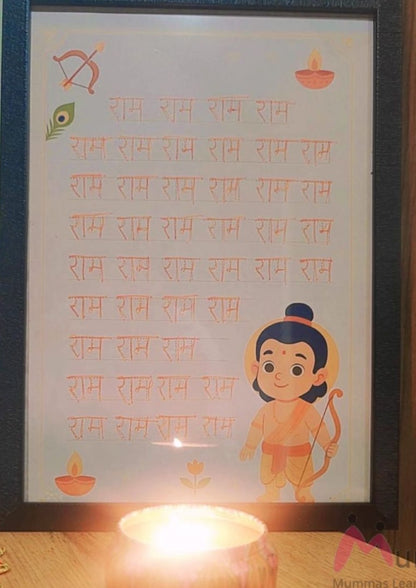 राम राम राम राम
राम राम राम राम राम राम
राम राम राम राम राम राम
राम राम राम राम राम राम
राम राम राम राम राम राम
राम राम राम राम
राम राम राम
राम राम राम राम
राम राम राम राम
Mu
Mummas Lear